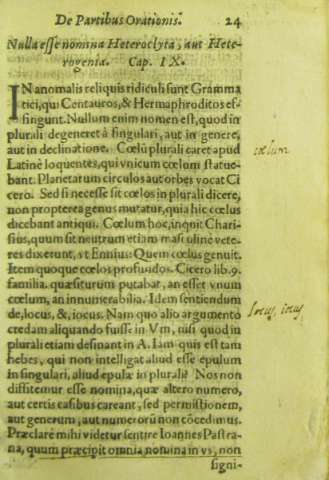 De Partibus Orationis. 24
Nulla esse nomina Heteroclyta, aut Hete-
rogenia. Cap. IX.
IN anomalis reliquis ridiculi sunt Gramma
tici, qui Centauros, & Hermaphroditos ef-
fingunt. Nullum enim nomen est, quod in
plurali degeneret à singulari, aut in genere,
aut in declinatione. Cœlũ plurali caret apud
Latinè loquentes, qui vnicum cœlum statue-
bant. Planetarum circulos aut orbes vocat Ci
cero. Sed si necesse sit cœlos in plurali dicere,
non propterea genus mutatur, quia hic cœlus
dicebant antiqui. Cœlum hoc, inqnit Chari-
sius, quum sit neutrum etiam masculinè vete-
res dixerunt, vt Ennius: Quem cœlus genuit.
Item quoque cœlos profundos. Cicero lib. 9.
familia. quæsiturum putabat, an esset vnum
cœlum, an innumerabilia. Idem sentiendum
de, locus, &, iocus. Nam quo alio argumento
credam aliquando fuisse in Vm, nisi quod in
plurali etiam desinant in A. Iam quis est tam
hebes, qui non intelligat aliud esse epulum
in singulari, aliud epulæ in plurali? Nos non
diffitemur esse nomina, quæ altero numero,
aut certis casibus careant, sed permistionem,
aut generum, aut numerorũ non cõcedimus.
Præclarè mihi videtur sentire Ioannes Pastra-
na, quum præcipit omnia nomina in vs, non
signi-
cœlum
locus, iocus